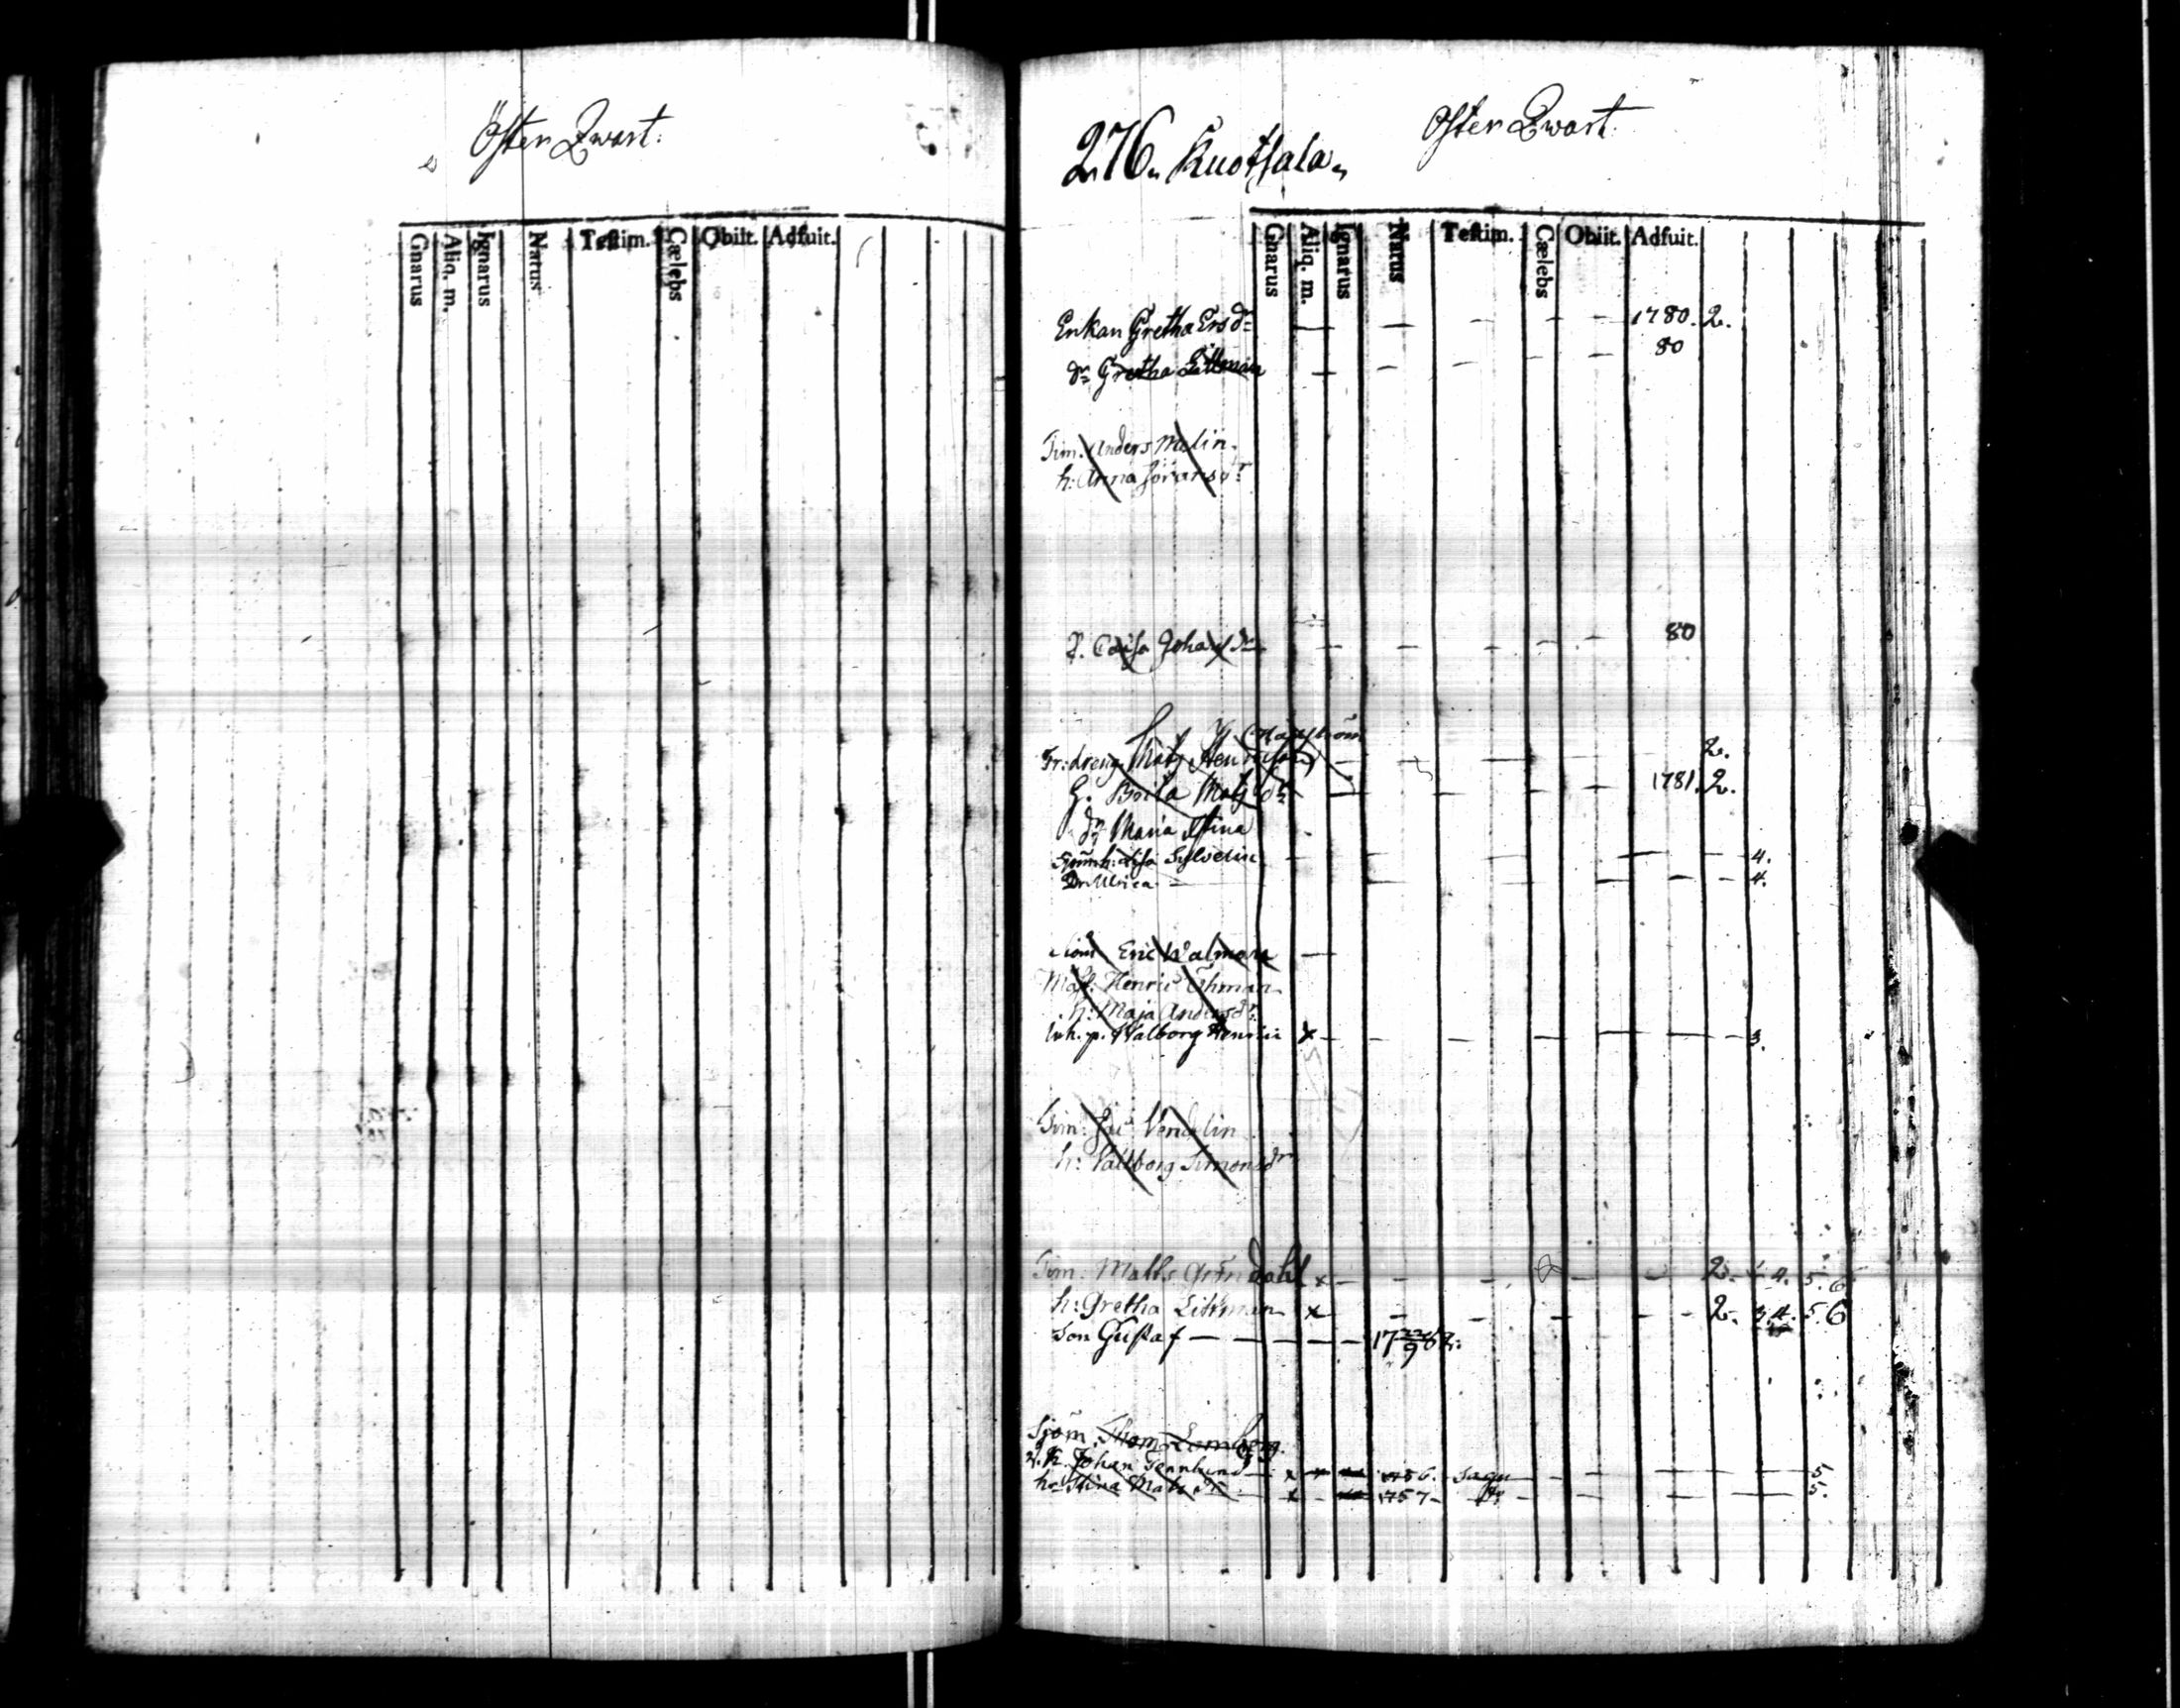 Öster Qwart:
Gnarus Aliq. m. Ignarus Natus Testim. Cælebs Obiit. Adfuit.
276. Kuottala.
Öster Qwart.
Gnarus Aliq. m. Ignarus Natus Testim. Cælebs Obiit. Adfuit.
Enkan Gretha Ersdr — — — — — 1780. 2.
dr Gretha Littman — — — — — 80
Tim. Anders Malin.
h: Anna Göransdr
Caisa Johansdr — — — — — — 80
Matz Henricsson — — — — 2.
H. Beita Matzdr — — — — — 1781. 2.
dr Maria Stina
Lisa Sylvelin — — — — 4.
Dr Ulrica — — — — — 4.
Eric Walman —
Henric Öhman
h: Maja Andersdr
Inh. p. Walborg Henric x — — — — — — 3.
Tim: Vendelin
h: Vallborg Simonsdr
Tim. Matts Gröndahl x — — — — — 2. 4. 5. 6
h: Gretha Littman x — — — — — 2. 3. 4. 5. 6
Son Gustaf — — — — 17
Sjöm. Thom. Lomberg.
Johan x 1756. — — — 5
hu Stina Matsdr x 1757 — — — 5.